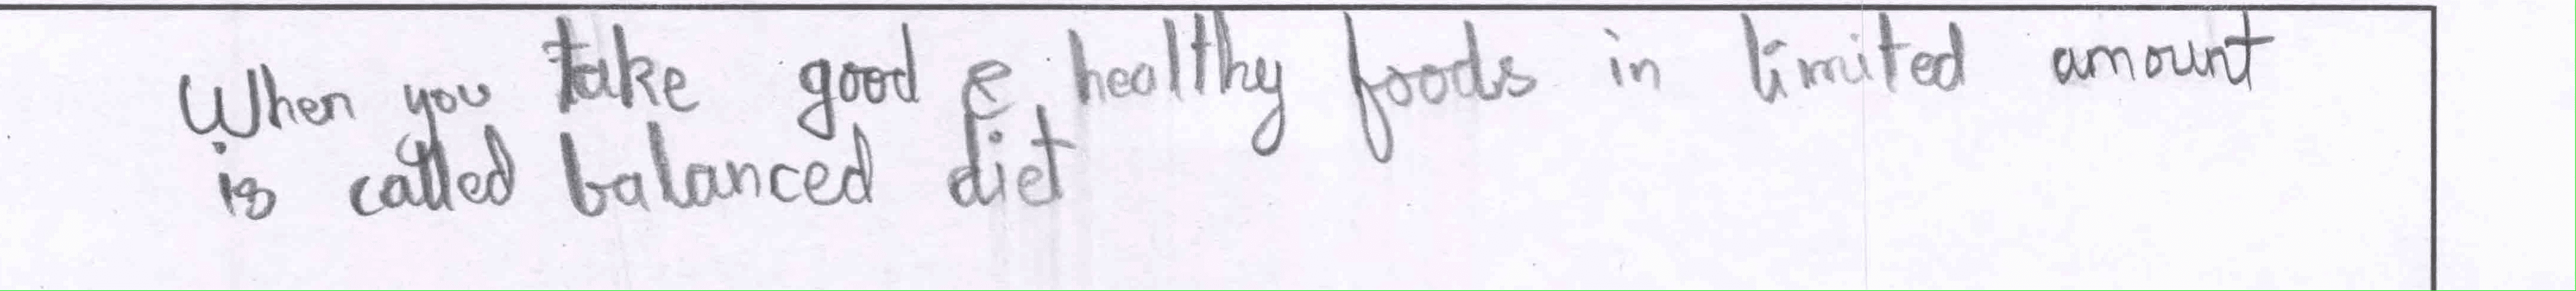 When you take good & healthy foods in limited amount
is called balanced diet